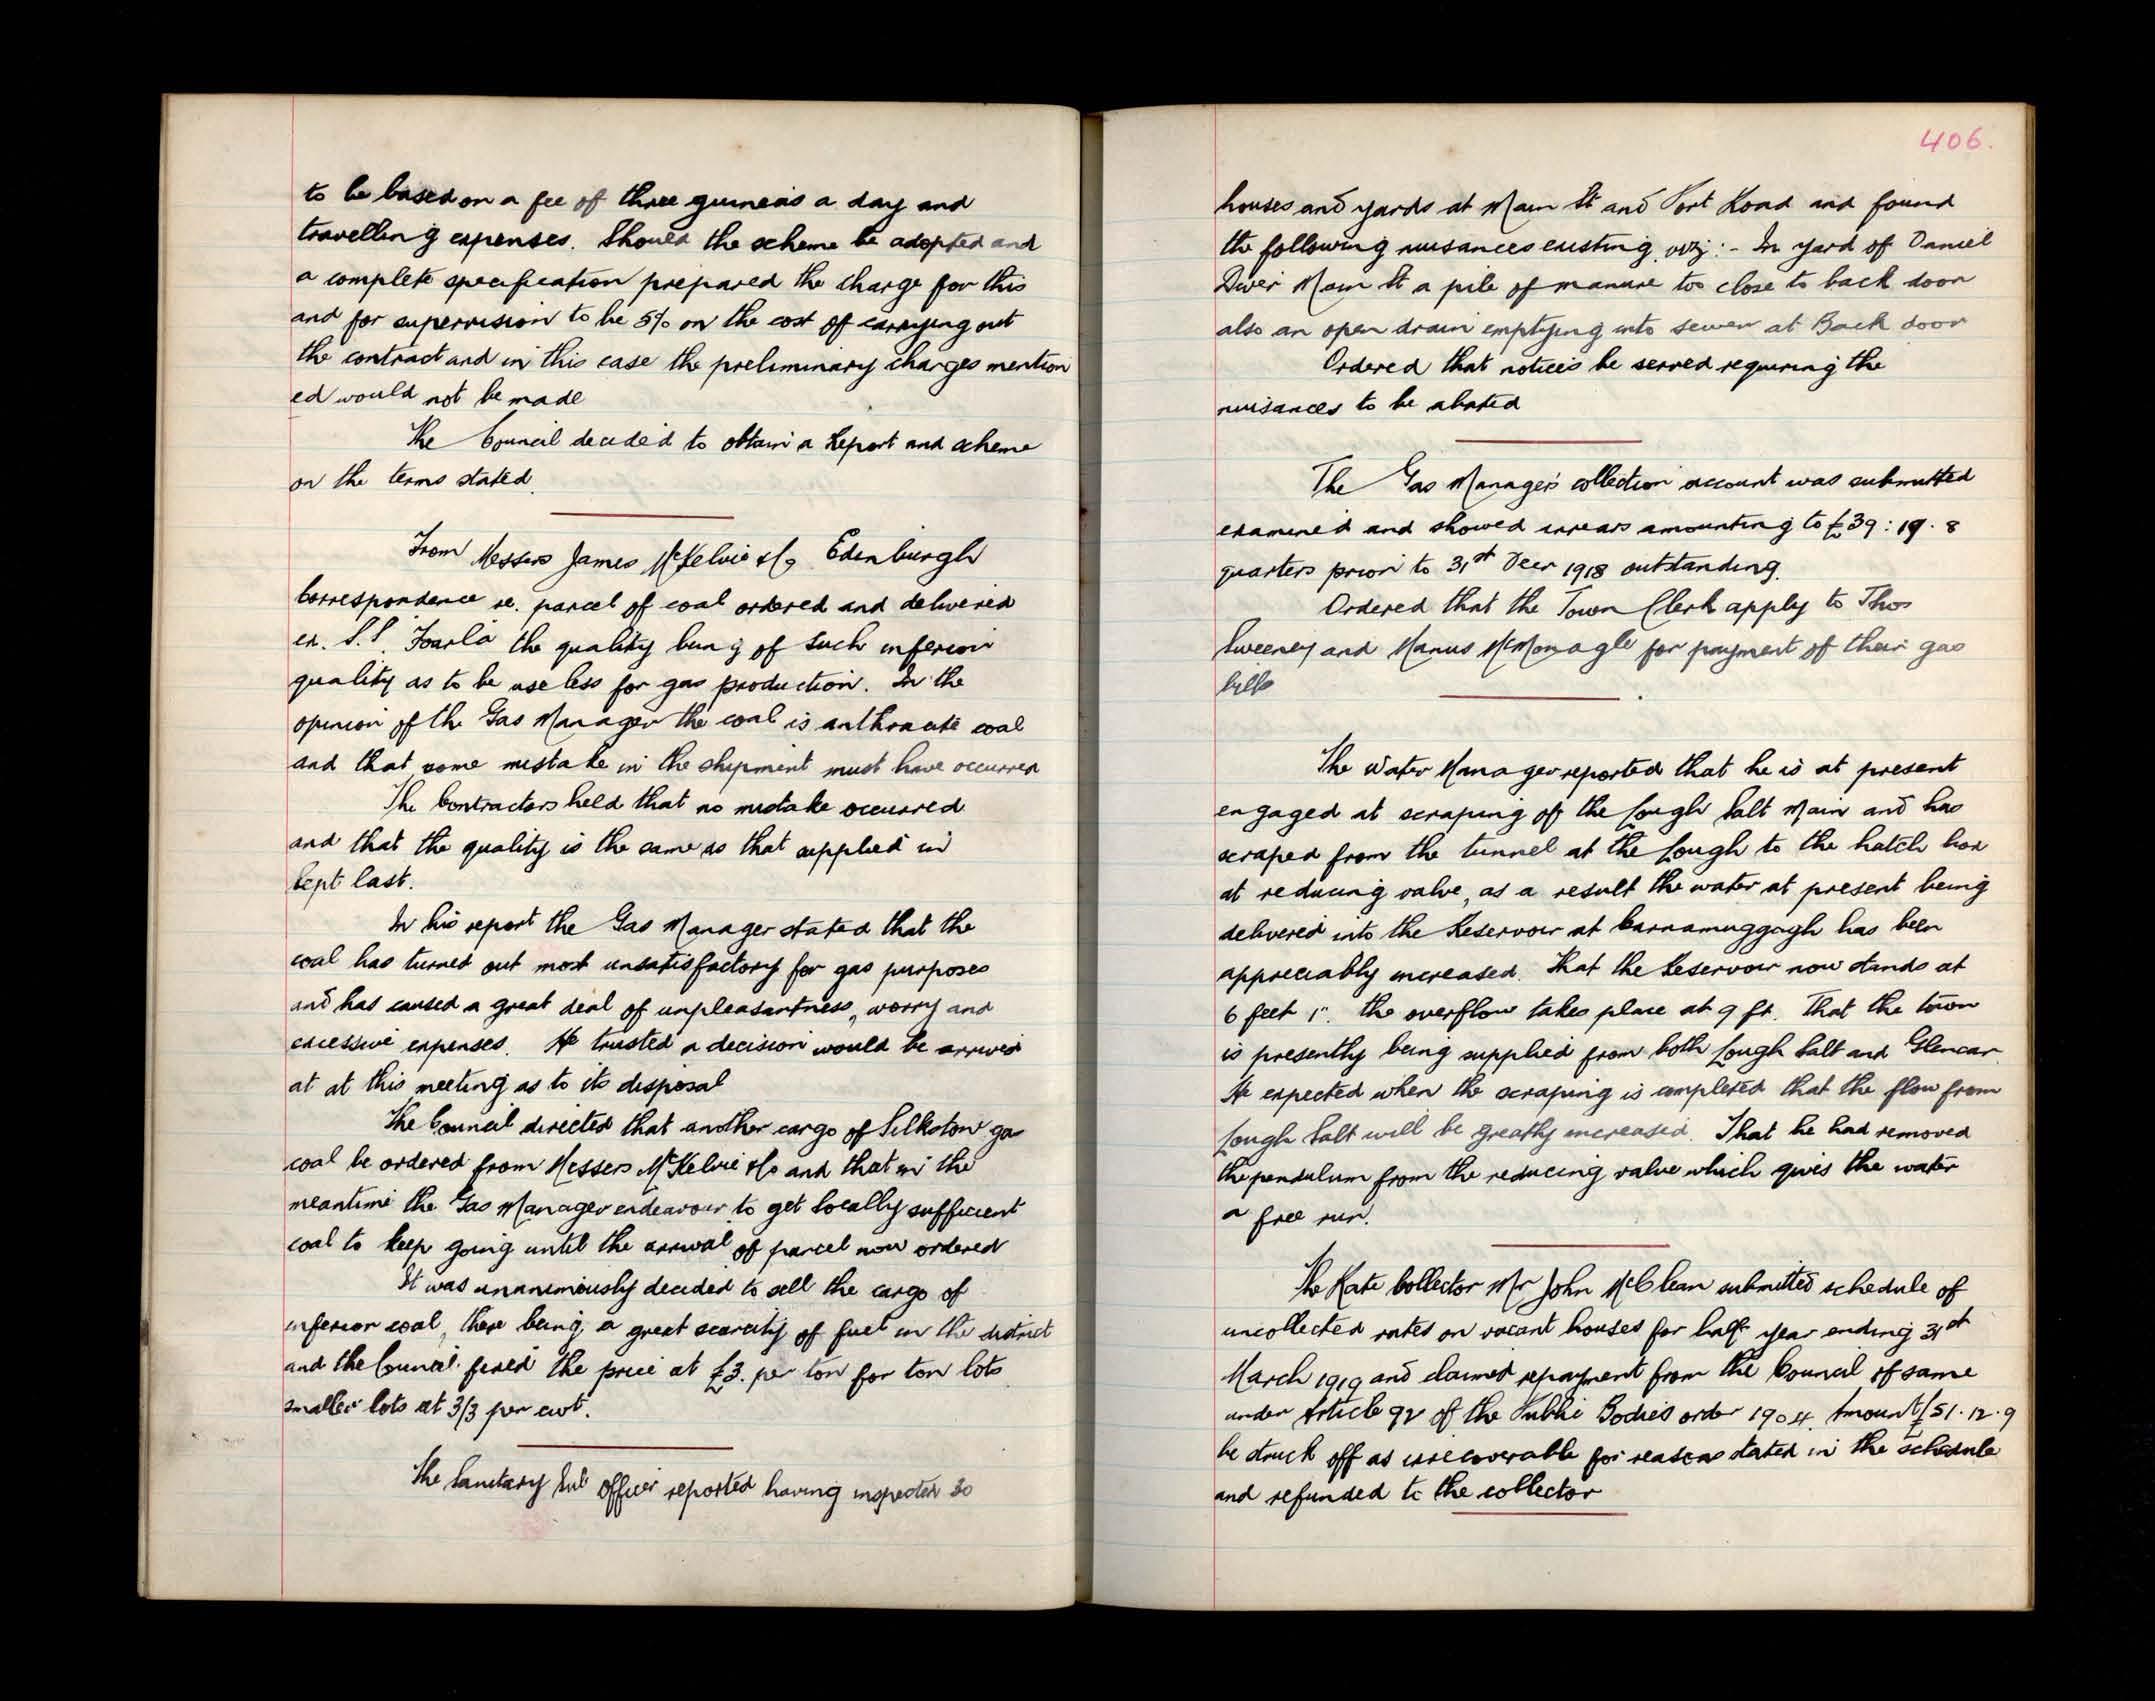 to be based on a fee of three guineas a day and
travelling expenses. Should the scheme be adopted and
a complete specification prepared the charge for this
and for supervision to be 5% on the cost of carrying out
the contract and in this case the preliminary charges mention
ed would not be made
The Council decided to obtain a Report and scheme
on the terms stated.
From Messrs James McKelvie & Co Edenburgh
Correspondence re. parcel of coal ordered and delivered
ex. S.S. the quality being of such inferior
quality as to be useless for gas production. In the
opinion of the Gas Manager the coal is anthracite coal
and that some mistake in the shipment must have occurred
The Contractors held that no mistake occurred
and that the quality is the same as that supplied in
Sept last.
In his report the Gas Manager stated that the
coal has turned out most unsatisfactory for gas purposes
and has caused a great deal of unpleasantness, worry and
excessive expenses. He trusted a decision would be arrived
at at this meeting as to its disposal
The Council directed that another cargo of Silkstow gas
coal be ordered from Messers McKelvie & Co and that in the
meantime the Gas Manager endeavour to get locally sufficient
coal to keep going until the arrival of parcel now ordered
It was unanimously decided to sell the cargo of
inferior coal, there being a great scarcity of fuel in the district
and the Council fixed the price at £3. per ton for ton lots
smaller lots at 3/3 per cwt.
The Sanitary Sub Officer reported having inspected 30
406.
houses and yards at Main St and Port Road and found
the following nuisances existing viz:- In yard of Daniel
Diver Main St a pile of manure too close to back door
also an open drain emptying into sewer at Back door
Ordered that notices be served requiring the
nuisances to be abated
The Gas Manager's collection account was submitted
examined and showed arrears amounting to £39:19.8
quarters prior to 31st Decr 1918 outstanding.
Ordered that the Town Clerk apply to Thos
Sweeney and Manus McMonagle for payment of their gas
bills
The Water Manager reported that he is at present
engaged at scraping of the Lough Salt Main and has
scraped from the tunnel at the Lough to the hatch box
at reducing valve, as a result the water at present being
delivered into the Reservoir at Carnamuggagh has been
appreciably increased. That the Reservoir now stands at
6 feet 1". the overflow takes place at 9 ft. That the town
is presently being supplied from both Lough Salt and Glencar.
He expected when the scraping is completed that the flow from
Lough Salt will be greatly increased. That he had removed
the pendulum from the reducing valve which gives the water
a free run.
The Rate Collector Mr John McClean submitted schedule of
uncollected rates on vacant houses for half year ending 31st
March 1919 and claimed repayment from the Council of same
under Article 92 of the Public Bodies order 1904. Amount £51.12.9
be struck off as irrecoverable for reasons stated in the schedule
and refunded to the collector